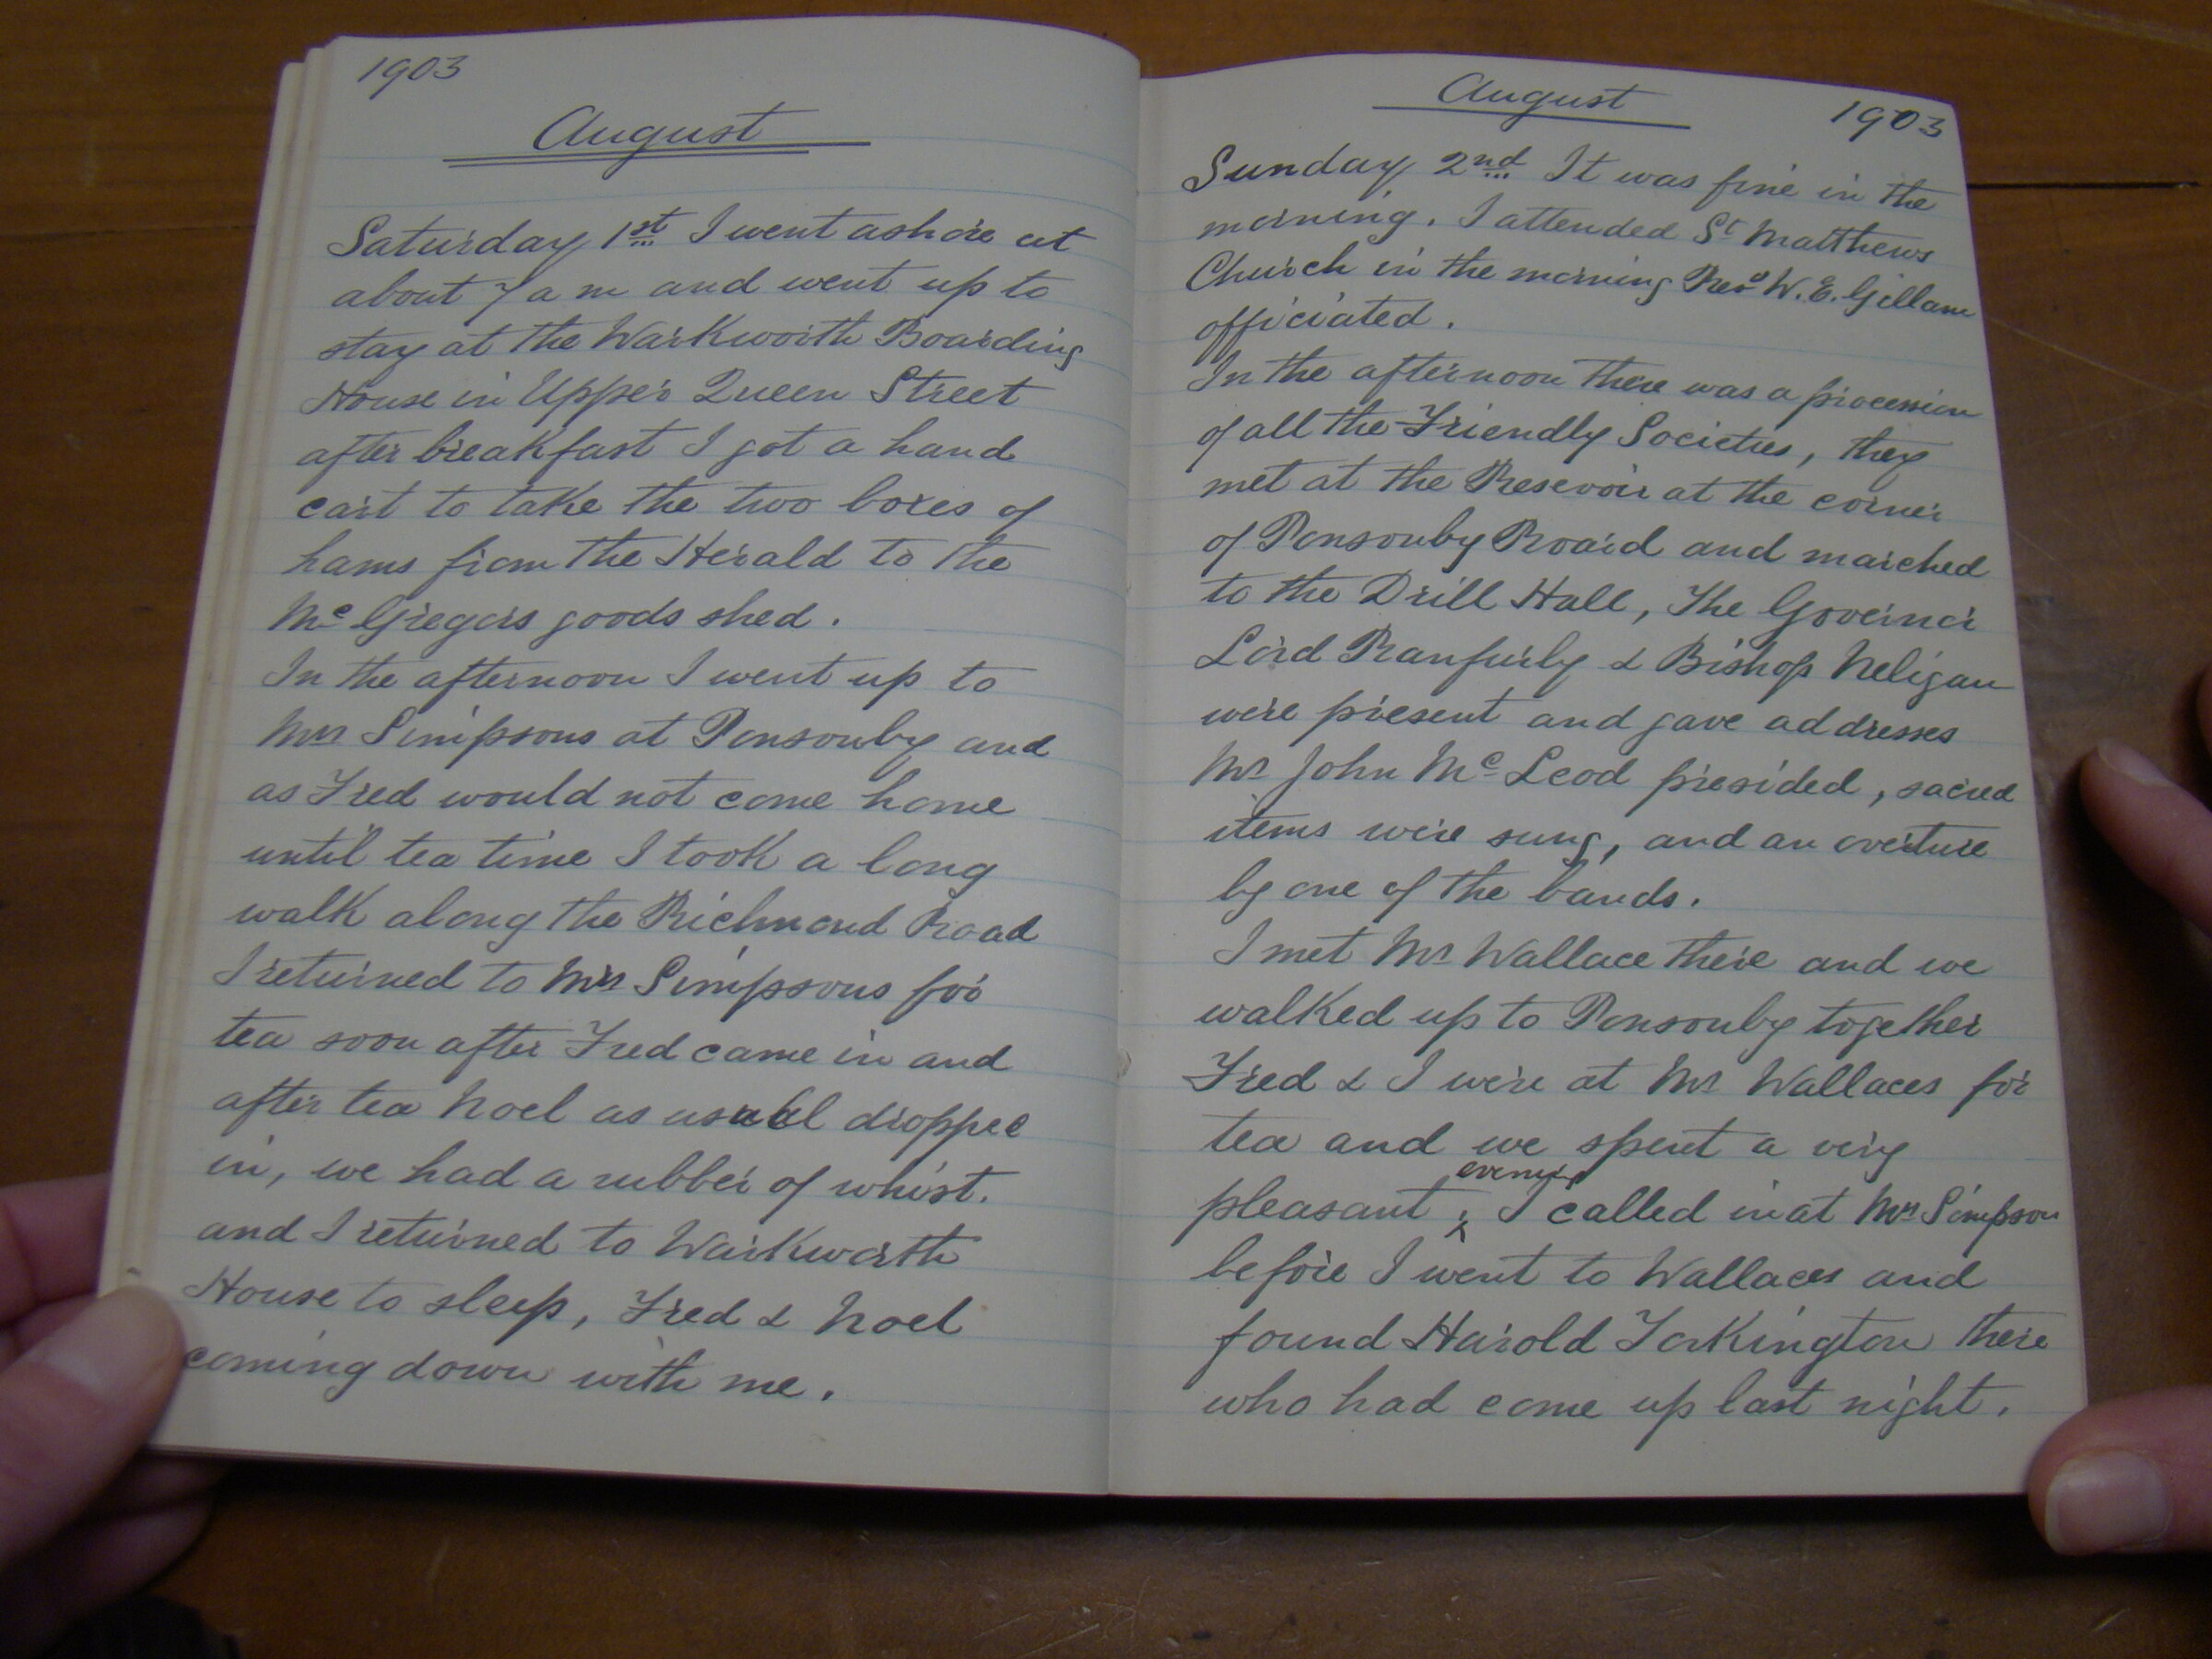 1903
August
Saturday 1st I went ashore at
about 7 a m and went up to
stay at the Warkworth Boarding
House in Upper Queen Street
after breakfast I got a hand
cart to take the two boxes of
hams from the Herald to the
McGregors goods shed.
In the afternoon I went up to
Mrs Simpsons at Ponsonby and
as Fred would not come home
until tea time I took a long
walk along the Richmond Road
I returned to Mrs Simpsons for
tea soon after Fred came in and
after tea Noel as usual dropped
in, we had a rubber of whist.
and I returned to Warkworth
House to sleep, Fred & Noel
coming down with me.
August 1903
Sunday 2nd It was fine in the
morning. I attended St Matthews
Church in the morning Revd W. E. Gillam
officiated.
In the afternoon there was a procession
of all the Friendly Societies, they
met at the Resevoir at the corner
of Ponsonby Roard and marched
to the Drill Hall, The Governor
Lord Ranfurly & Bishop Neligan
were present and gave addresses
Mr John McLeod presided, sacred
items were sung, and an overture
by one of the bands.
I met Mr Wallace there and we
walked up to Ponsonby together
Fred & I were at Mr Wallaces for
tea and we spent a very
pleasant evening. I called in at Mrs Simpson
before I went to Wallaces and
found Harold Torkington there
who had come up last night.